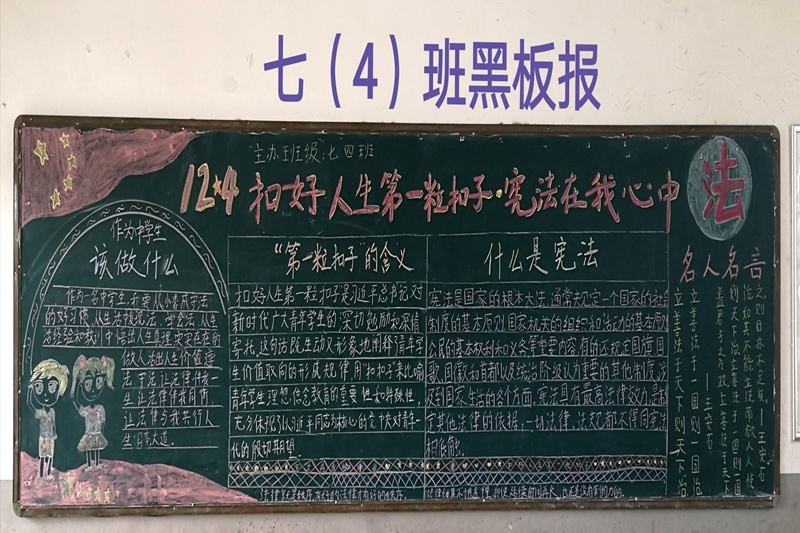 七（4）班黑板报
主办班级：七四班
12★4 扣好人生第一粒扣子·宪法在我心中
法
作为中学生
该做什么
作为一名中学生，我要从小养成守法
的好习惯，从生活中
做人活出人生价值要
让法律伴我一
生 让法律伴我同行
让法律与我共行人
生日常大道。
“第一粒扣子”的含义
扣好人生第一粒扣子是习近平总书记对
新时代广大青年学生的深切勉励和深情
寄托，这句话既生动又形象地阐释青年学
生价值取向的形成规律用扣子来比喻
青年学生理想、信念教育的重要性和特殊性
充分体现了以习近平同志为核心的党中央对青年一
代的殷切期望
什么是宪法
宪法是国家的根本大法，通常规定一个国家的社会
制度的基本原则国家机关的组织和活动的基本原则
公民的基本权利和义务等重要内容有的还规定国旗国
歌国徽和首都以及统治阶级认为重要的其他制度，涉
及到国家生活的各个方面，宪法具有最高法律效力是制
定其他法律的依据，一切法律、法规都不得同宪法
相抵触。
名人名言
立善法于天下则天下治
立善法于一国则一国治
——王安石
盖君子之为政立善法于天下
则天下治立善法于一国则一国
治如其不能立法而欲人人悦
之则日亦不足矣——王安石